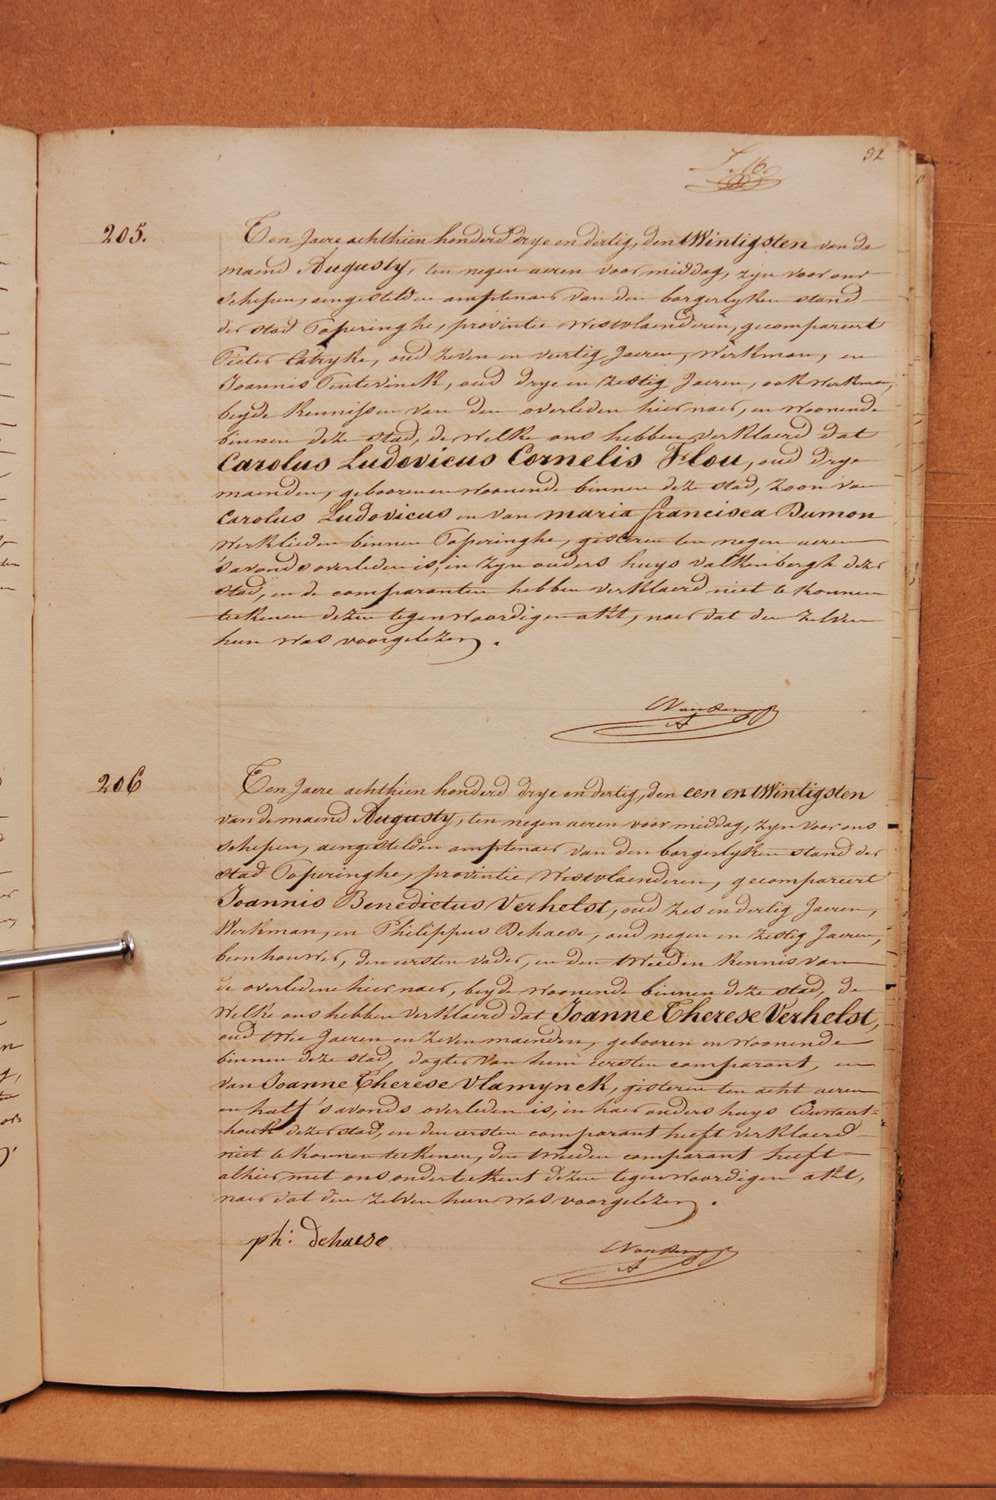 92
205.
Ten Jaere achthien honderd drye en dertig, den twintigsten van de
maend Augusty, ten negen ueren voor middag, zyn voor ons
schepen, aengestelden amptenaer van den borgerlyken stand
der stad Poperinghe, provintie Westvlaenderen, gecompareert
Pieter Catryke, oud zeven en veertig Jaeren, Werkman, en
Joannis Tentevinck, oud drye en zestig Jaeren, ook werkman,
beyde kennissen van den overleden hier naer, en woonende
binnen deze stad, de welke ons hebben verklaerd dat
Carolus Ludovicus Cornelis Flou, oud drye
maenden, gebooren en woonende binnen deze stad, zoon van
Carolus Ludovicus en van maria francisca Dumon
Werklieden binnen Poperinghe, gisteren ten negen ueren
s'avonds overleden is, in zyn ouders huys valkenbergh dezer
stad, en de comparanten hebben verklaerd niet te konnen
teekenen dezen tegenwoordigen akt, naer dat den zelven
hun was voorgelezen.
206
Ten Jaere achthien honderd drye en dertig, den een en twintigsten
van de maend Augusty, ten negen ueren voor middag, zyn voor ons
schepen, aengestelden amptenaer van den borgerlyken stand der
stad Poperinghe, provintie Westvlaenderen, gecompareert
Joannis Benedictus Verhelst, oud zes en dertig Jaeren,
Werkman, en Philippus Dehaese, oud negen en zestig Jaeren,
beenhouwer, den eersten vader, en den tweeden kennis van
de overledene hier naer, beyde woonende binnen deze stad, de
welke ons hebben verklaerd dat Joanne Therese Verhelst,
oud twee Jaeren en zeven maenden, gebooren en woonende
binnen deze stad, dogter van hem eersten comparant, en
van Joanne Therese Vlamynck, gisteren ten acht ueren
en half s'avonds overleden is, in haer ouders huys
houk dezer stad, en den eersten comparant heeft verklaerd
niet te konnen teekenen, den tweeden comparant heeft
alhier met ons onderteekent dezen tegenwoordigen akt,
naer dat den zelven hun was voorgelezen.
ph: Dehaese